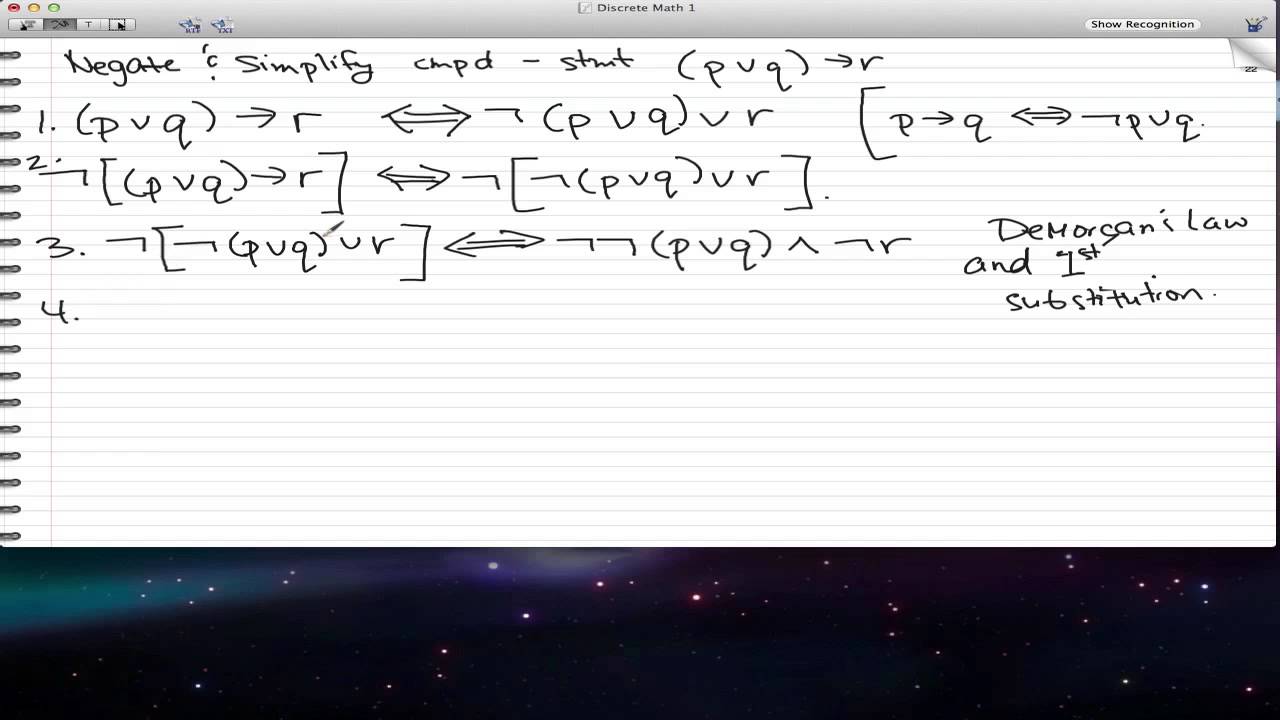 Discrete Math 1
T RTF TXT Show Recognition
22
Negate & Simplify cmpd - stmt (p ∨ q) → r
1. (p ∨ q) → r ⟺ ¬ (p ∨ q) ∨ r [ p → q ⟺ ¬p ∨ q.
2. ¬ [(p ∨ q) → r] ⟺ ¬ [¬ (p ∨ q) ∨ r ].
3. ¬ [¬ (p ∨ q) ∨ r ] ⟺ ¬¬ (p ∨ q) ∧ ¬r
DeMorgan's law
and 1st
substitution.
4.